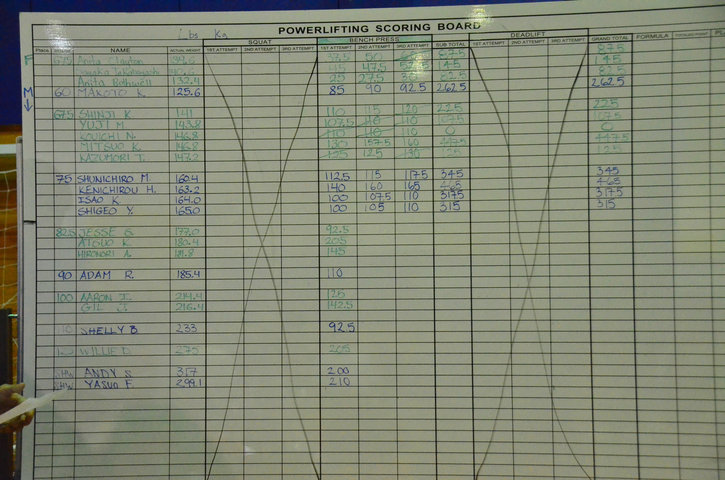 POWERLIFTING SCORING BOARD
Lbs Kg
SQUAT BENCH PRESS DEADLIFT
Place NAME ACTUAL WEIGHT 1ST ATTEMPT 2ND ATTEMPT 3RD ATTEMPT 1ST ATTEMPT 2ND ATTEMPT 3RD ATTEMPT SUB TOTAL 1ST ATTEMPT 2ND ATTEMPT 3RD ATTEMPT GRAND TOTAL FORMULA
F Anita Clayton 37.5 50 87.5
47.5 145 145
Anita 132.4 25 27.5 30 82.5 82.5
M 60 MAKOTO K. 125.6 85 90 92.5 262.5 262.5
67.5 SHINJI K. 141 110 115 120 225 225
YUJI M. 143.8 107.5 110 110 107.5 107.5
KOUICHI N. 146.8 110 110 110 0 0
MITSUO K. 146.8 130 157.5 160 447.5 447.5
KAZUMORI T. 147.2 125 125 130 125 125
75 SHUNICHIRO M. 160.4 112.5 115 117.5 345 345
KENICHIROU H. 163.2 140 160 165 465 465
ISAO K. 164.0 100 107.5 110 317.5 317.5
SHIGEO Y. 165.0 100 105 110 315 315
82.5 JESSE G. 177.0 92.5
ATSUO K. 180.4 205
HIRONORI A. 181.8 145
90 ADAM R. 185.4 110
100 AARON J. 214.4 125
GIL J. 216.4 142.5
110 SHELLY B 233 92.5
WILLIE D. 275 205
SHW ANDY S. 317 200
SHW YASUO F. 299.1 210